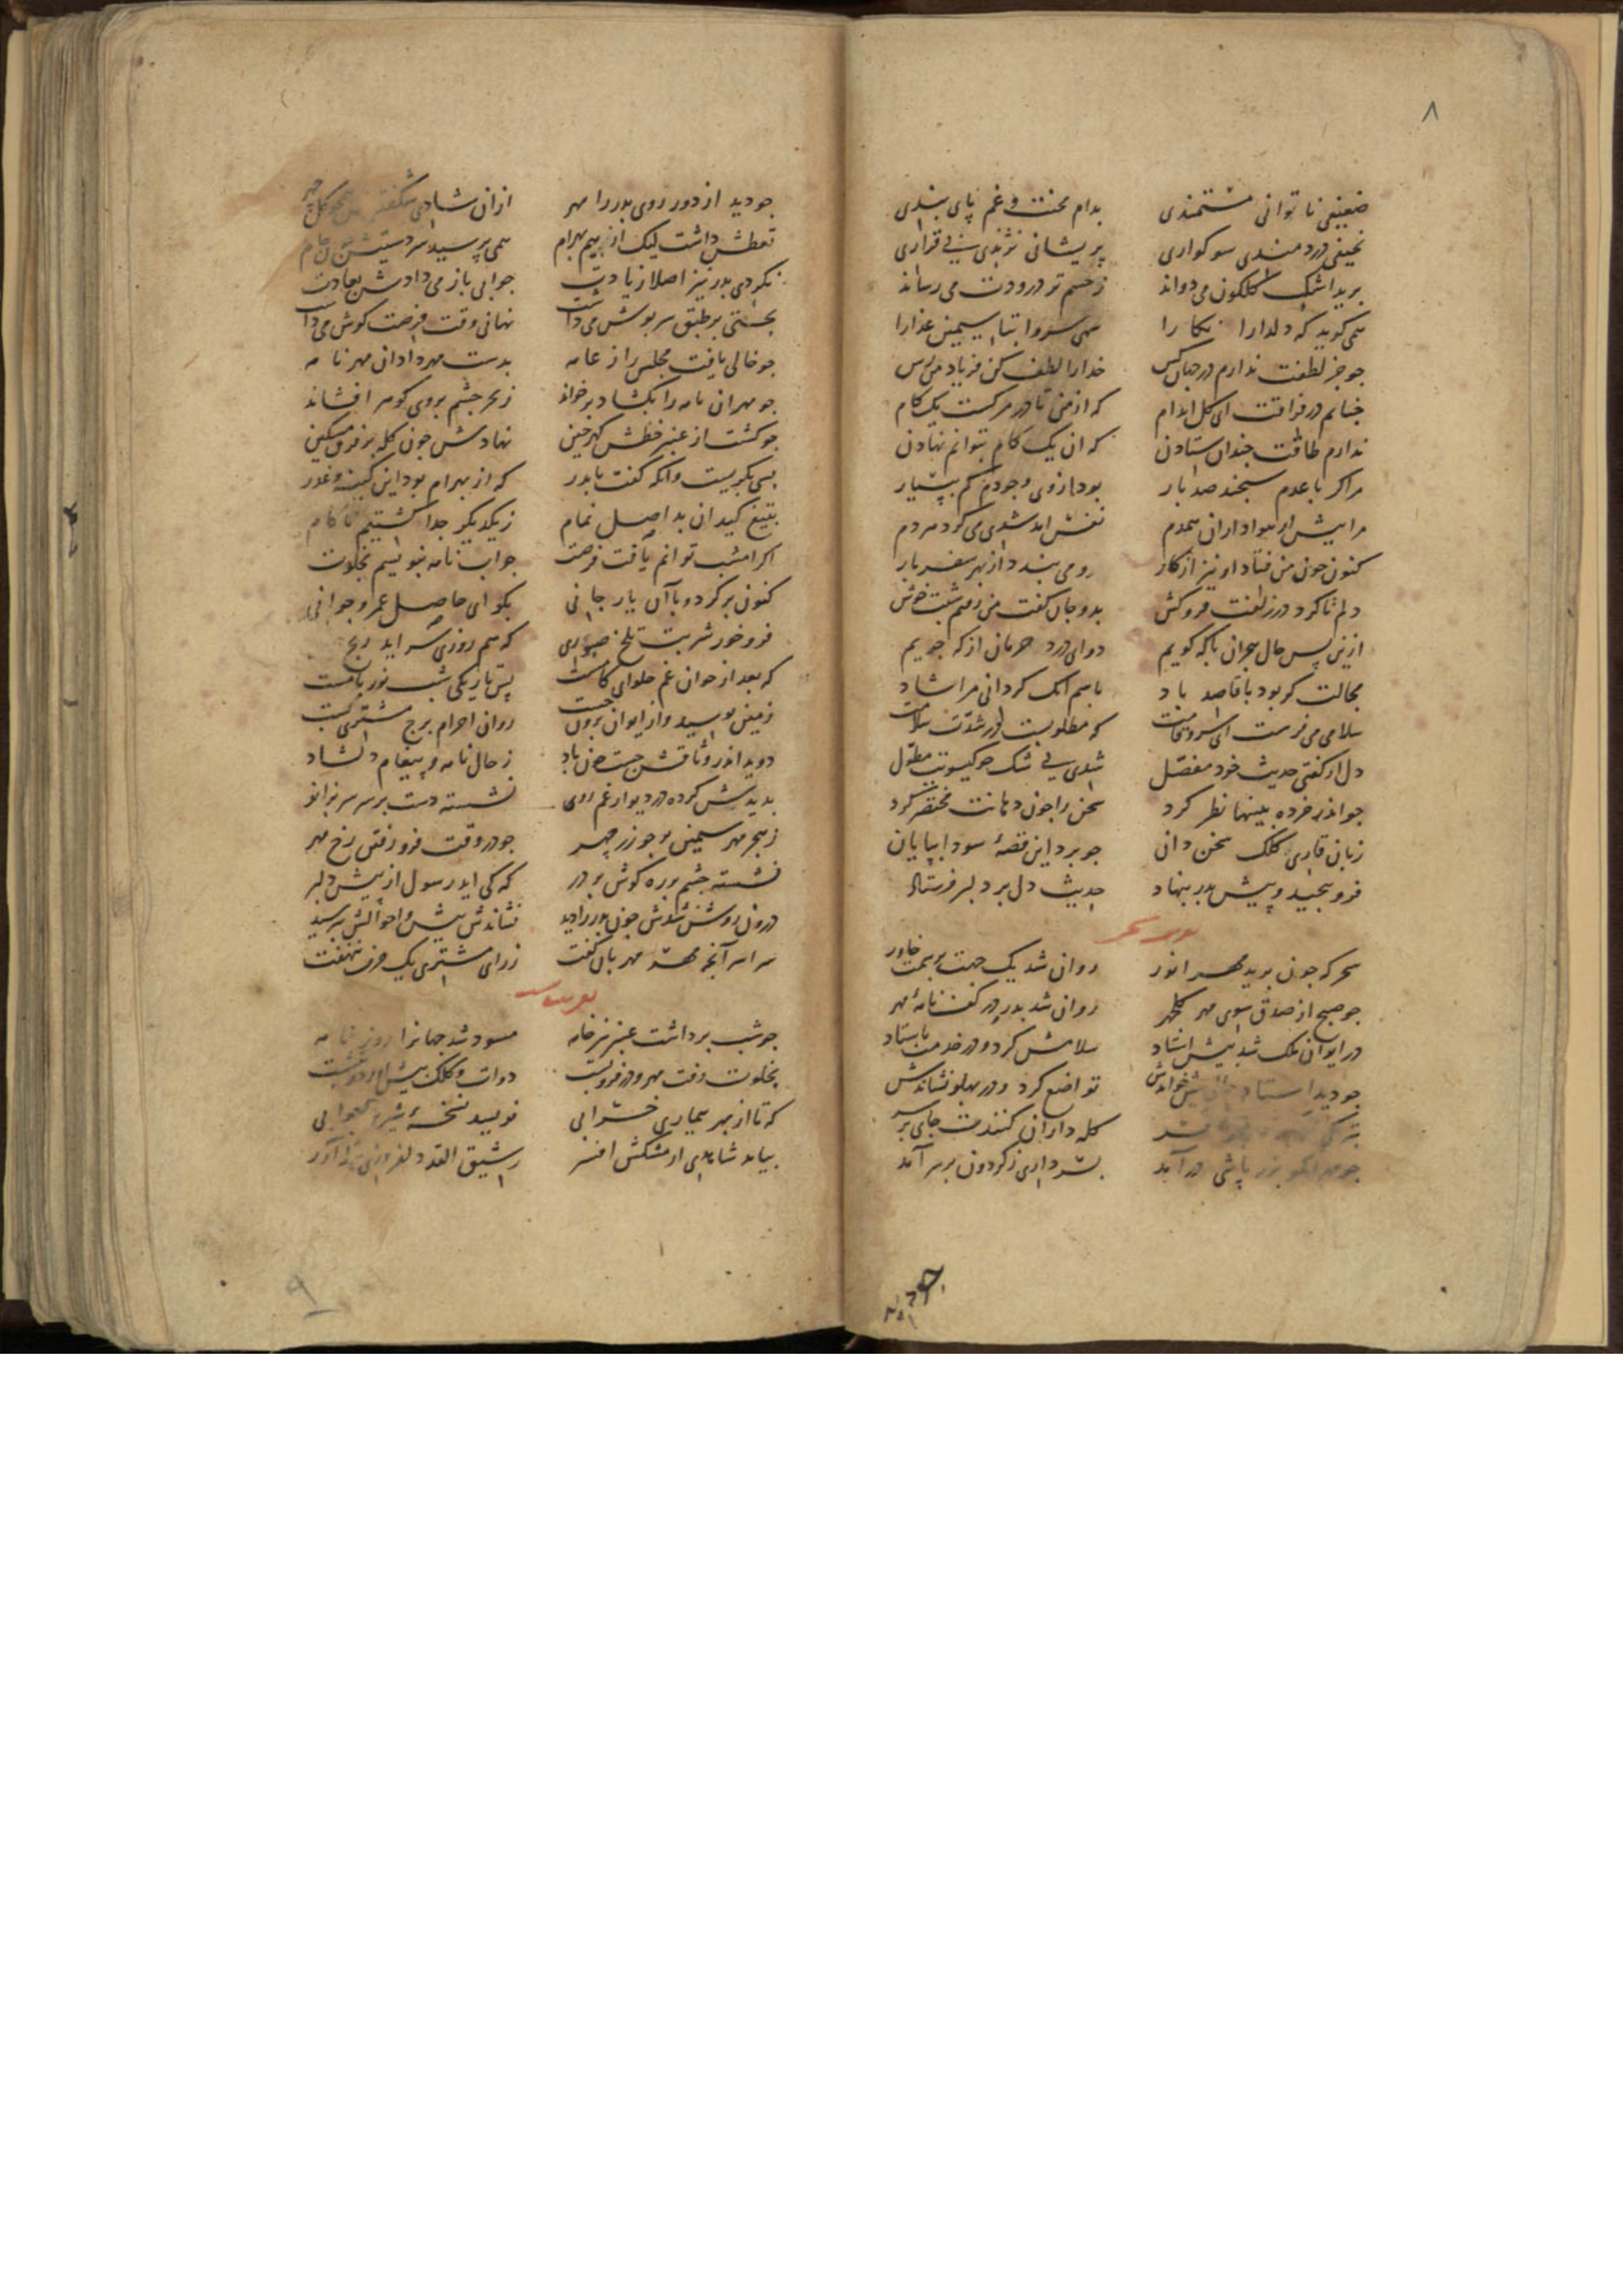 ۸
ضعیفی ناتوانی مستمندی بدام محنت و غم پای بندی
نحیفی دردمندی سوکواری پریشانی نژندی بی قراری
برید اشک کلکون می دواند ز چشم تو درودت می رساند
همی کوید که دلدارا نکارا سهی سروا بتا سیمین عذارا
جو جز لطفت ندارم در جهان کس خدارا لطف کن فریاد من رس
جنانم در فراقت ای کل اندام که از من تا در مرکست یک کام
ندارم طاقت جندان ستادن که آن یک کام بتوانم نهادن
مرا کر با عدم سنجند صد بار بود ازوی وجودم کم ببسیار
مرا بیش از هواداران همدم نفس آمد شدی می کرد هر دم
کنون جون من فتاد او نیز از کار رو می بندد از بهر سفر بار
دلم تا کرد در زلفت فروکش بدو جان کفت من رفتم شبت خوش
ازین پس حال هجران با که کویم دوای درد حرمان از که جویم
مجالت کر بود با قاصد باد باسم انک کردانی مرا شاد
سلامی می فرست ای سرو قامت که مطلوبست در شدت سلامت
دل ار کفتی حدیث خود مفصل شدی بی شک جو کیسویت مطول
جو اندر خرده بینیها نظر کرد سخن را جون دهانت مختصر کرد
زبان قاری کلک سخن دان جو برد این قصهٔ سودا بپایان
فرو پیجید و پیش بدر بنهاد حدیث دل بر دلبر فرستاد
سحر که جون برید مهر انور روان شد یک جهت بر سمت خاور
جو صبح از صدق سوی مهر کلجهر روان شد بدر در کف نامهٔ مهر
در ایوان ملک شد پیش استاد سلامش کرد و در خدمت باستاد
جو دید استاد پیش خواندش تواضع کرد و در پهلو نشاندش
کله داران کنندت جای بر سر
جو مهر زر پاشی در آمد بسرداری ز کردون بر سر آمد
جو دید از دور روی بدر را مهر ازان شادی شکفتش همجو کل جهر
تعطش داشت لیک از بیم بهرام همی پرسید سر دستیش
نکردی بدر نیز اصلا زیادت جوابی باز می دادش بعادت
بجستی بر طبق سربوش می داشت نهانی وقت فرصت کوش می داشت
جو خالی یافت مجلس را ز عامه بدست مهر داد آن مهر نامه
جو مهر آن نامه را بکشاد برخواند ز بحر جشم بر وی کوهر افشاند
جو کشت از عنبر خطش کهرجین نهادش جون کله بر فرق مسکین
بسی بکریست وانکه کفت با بدر که از بهرام بود این کینه و غدر
بتیغ کید آن بد اصل نمام ز یکدیکر جدا کشتیم ناکام
اکر امشب توانم یافت فرصت جواب نامه بنویسم بخلوت
کنون برکرد و با آن یار جانی بکو ای حاصل عمر و جوانی
فرو خور شربت تلخ صبوری که هم روزی سر آید رنج
که بعد از خوان غم حلوای کامست پس تاریکی شب نور بامست
زمین بوسید و از ایوان برون جست روان احرام برج مشتری بست
دوید اندر وثاقش جست جون باد ز حال نامه و پیغام دلشاد
بدیدش کرده در دیوار غم روی نشسته دست بر سر سر بزانو
ز هجر مهر سیمین بر جو زر جهر جو در وقت فرو رفتن رخ مهر
نشسته جشم بر ره کوش بر در که کی آید رسول از پیش دلبر
درون روشن شدش جون بدر را دید نشاندش پیش و احوالش بپرسید
سراسر آنجه مهر مهربان کفت ز رای مشتری یک حرف ننهفت
جو شب برداشت عنبر نیز خامه مسود شد جهانرا روز نامه
بخلوت رفت مهر و در فرو بست دوات و کلک پیش آورد و بنشست
که تا از بهر بیماری خرابی نویسد نسخهٔ شیرین جوابی
بیامد شاهدی از مشکش افسر رشیق القد دلفروزی
۹